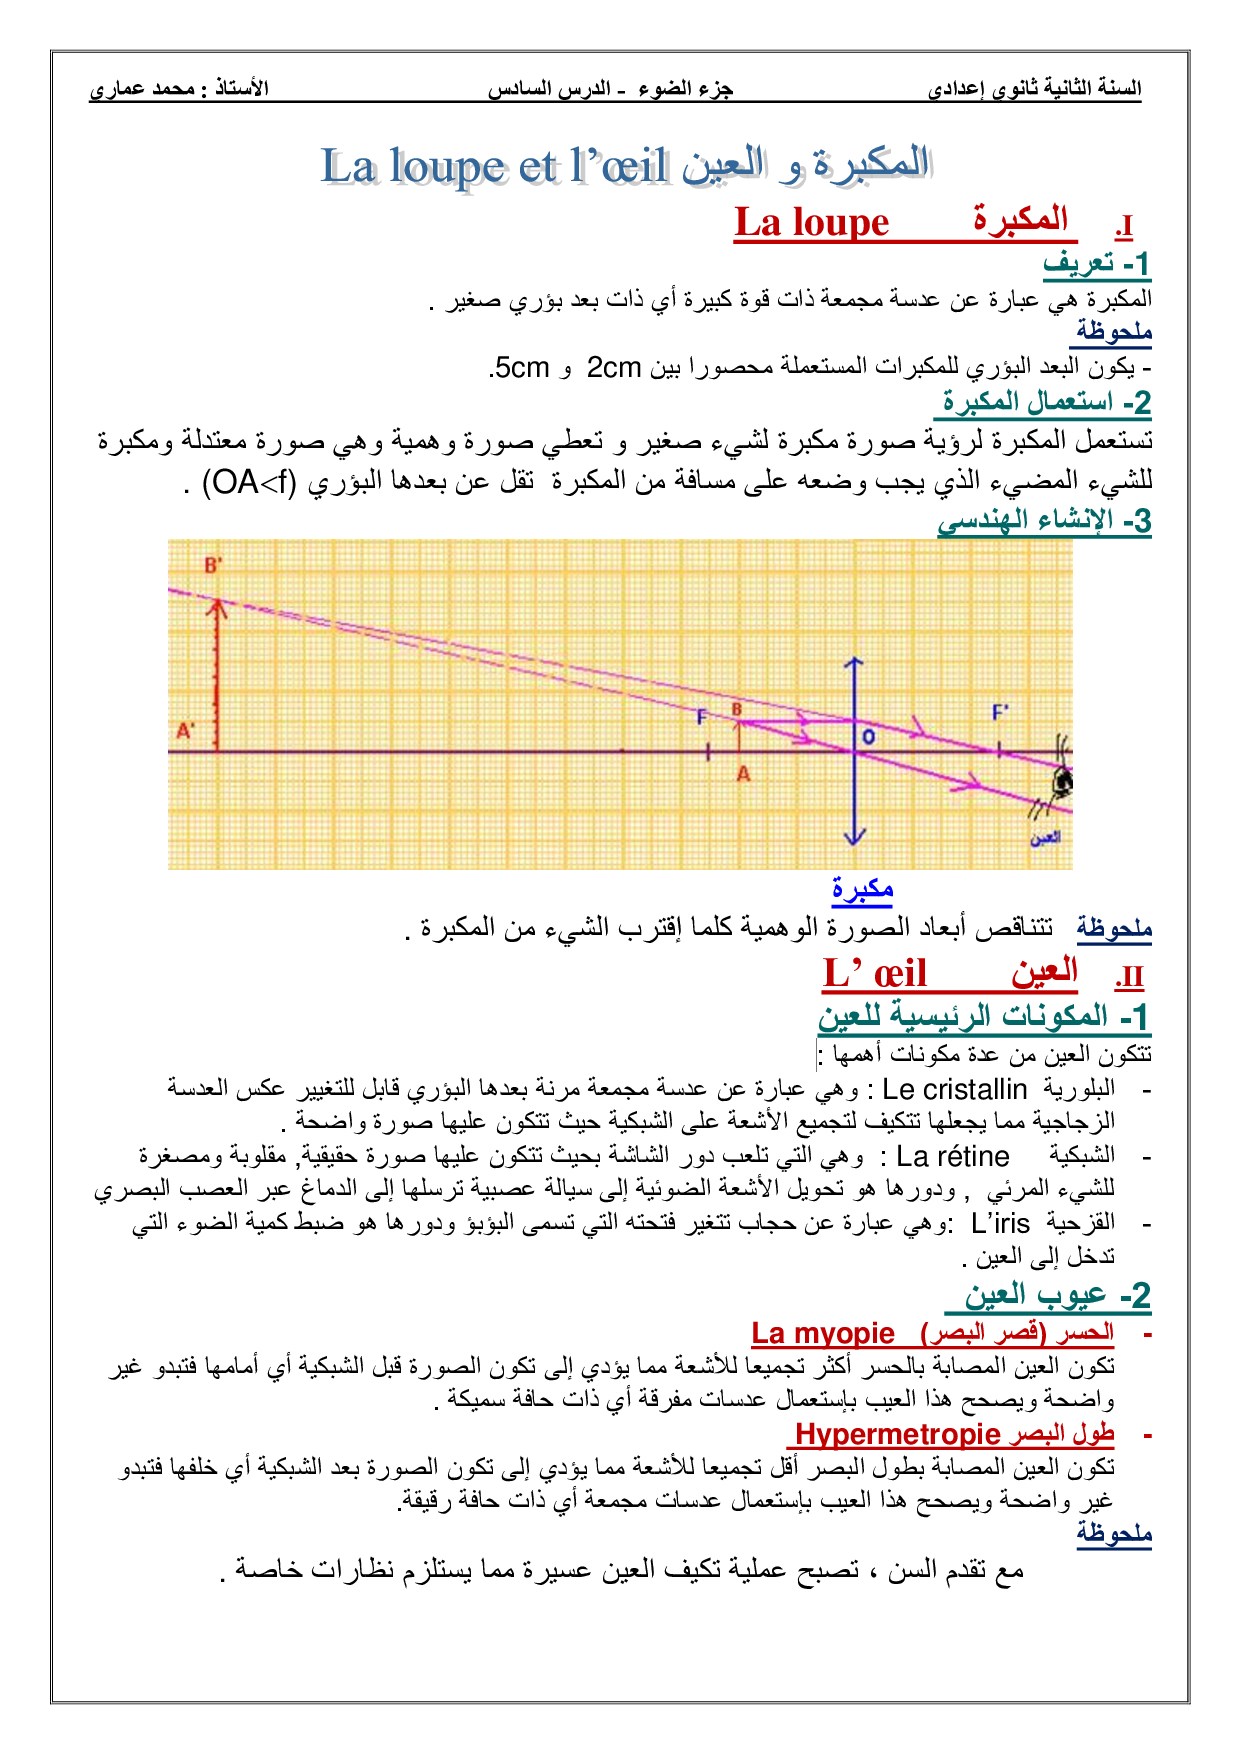 السنة الثانية ثانوي إعدادي جزء الضوء - الدرس السادس الأستاذ : محمد عماري
المكبرة و العين La loupe et l’œil
I. المكبرة La loupe
1- تعريف
المكبرة هي عبارة عن عدسة مجمعة ذات قوة كبيرة أي ذات بعد بؤري صغير .
ملحوظة
- يكون البعد البؤري للمكبرات المستعملة محصورا بين 2cm و 5cm.
2- استعمال المكبرة
تستعمل المكبرة لرؤية صورة مكبرة لشيء صغير و تعطي صورة وهمية وهي صورة معتدلة ومكبرة
للشيء المضيء الذي يجب وضعه على مسافة من المكبرة تقل عن بعدها البؤري (OA<f) .
3- الإنشاء الهندسي
B'
A'
F
B
A
O
F'
العين
مكبرة
ملحوظة تتناقص أبعاد الصورة الوهمية كلما إقترب الشيء من المكبرة .
II. العين L’ œil
1- المكونات الرئيسية للعين
تتكون العين من عدة مكونات أهمها :
- البلورية Le cristallin : وهي عبارة عن عدسة مجمعة مرنة بعدها البؤري قابل للتغيير عكس العدسة
الزجاجية مما يجعلها تتكيف لتجميع الأشعة على الشبكية حيث تتكون عليها صورة واضحة .
- الشبكية La rétine : وهي التي تلعب دور الشاشة بحيث تتكون عليها صورة حقيقية, مقلوبة ومصغرة
للشيء المرئي , ودورها هو تحويل الأشعة الضوئية إلى سيالة عصبية ترسلها إلى الدماغ عبر العصب البصري
- القزحية L’iris :وهي عبارة عن حجاب تتغير فتحته التي تسمى البؤبؤ ودورها هو ضبط كمية الضوء التي
تدخل إلى العين .
2- عيوب العين
- الحسر (قصر البصر) La myopie
تكون العين المصابة بالحسر أكثر تجميعا للأشعة مما يؤدي إلى تكون الصورة قبل الشبكية أي أمامها فتبدو غير
واضحة ويصحح هذا العيب بإستعمال عدسات مفرقة أي ذات حافة سميكة .
- طول البصر Hypermetropie
تكون العين المصابة بطول البصر أقل تجميعا للأشعة مما يؤدي إلى تكون الصورة بعد الشبكية أي خلفها فتبدو
غير واضحة ويصحح هذا العيب بإستعمال عدسات مجمعة أي ذات حافة رقيقة.
ملحوظة
مع تقدم السن ، تصبح عملية تكيف العين عسيرة مما يستلزم نظارات خاصة .